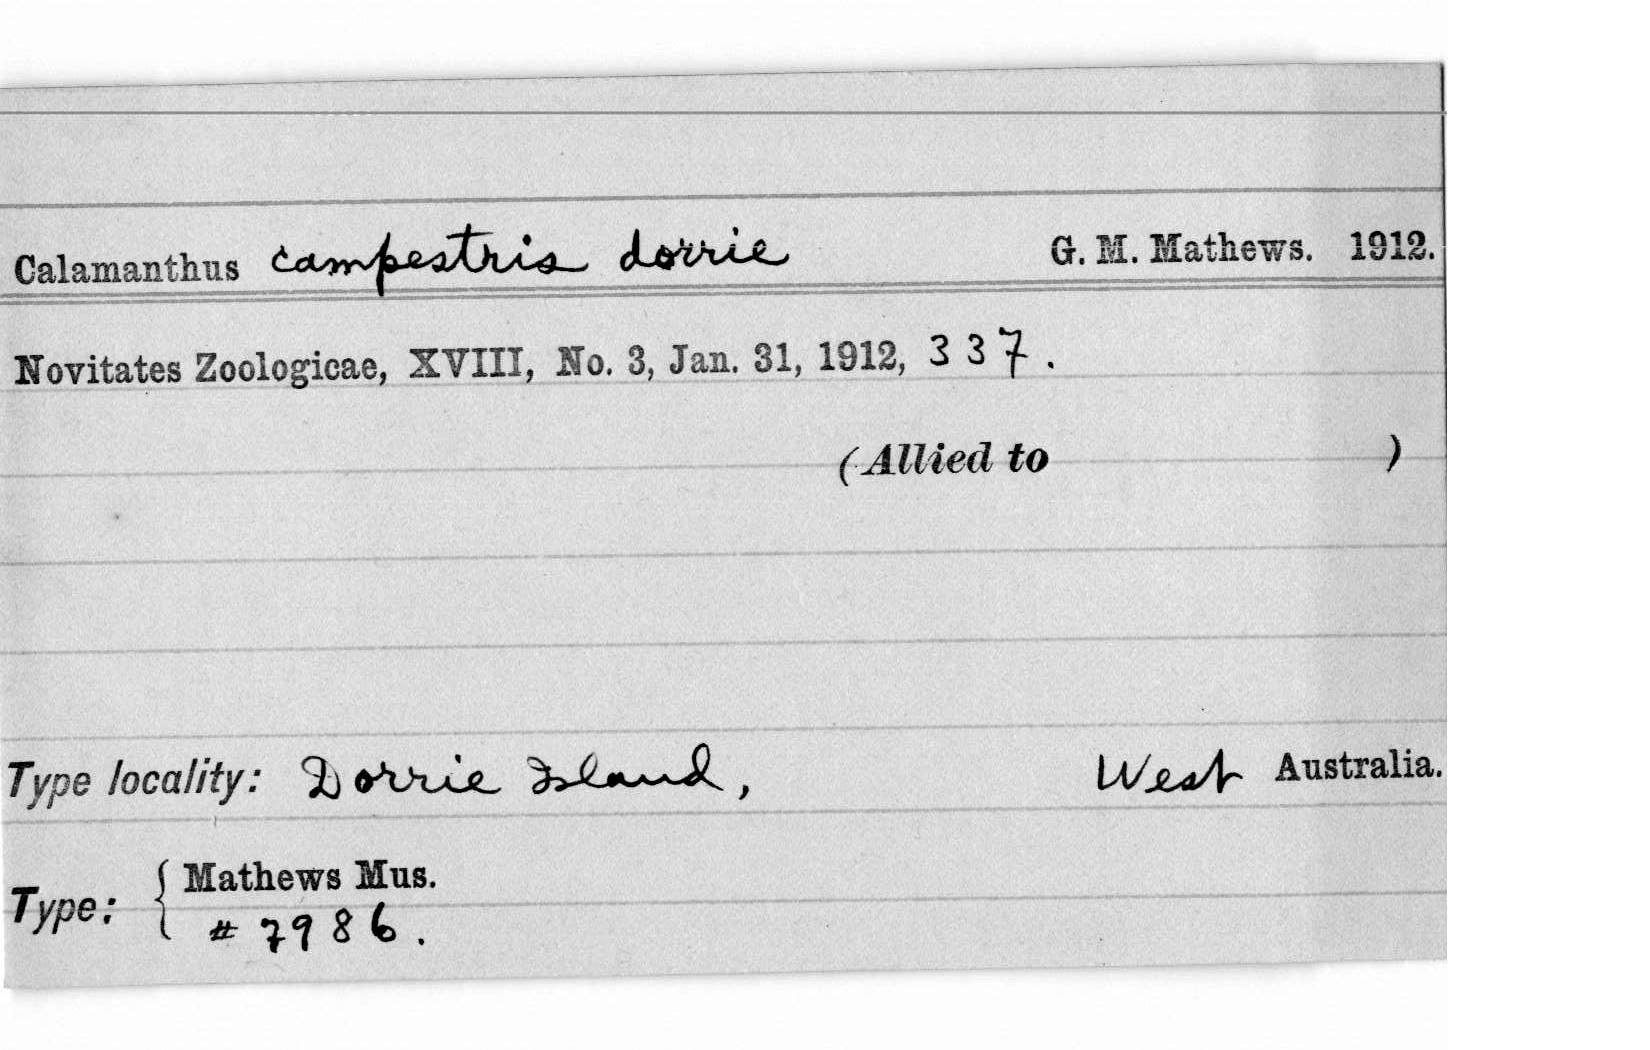 Calamanthus campestris dorrie G. M. Mathews. 1912.
Novitates Zoologicae, XVIII, No. 3, Jan. 31, 1912, 337.
(Allied to )
Type locality: Dorrie Island, West Australia.
Type: { Mathews Mus.
# 7986.